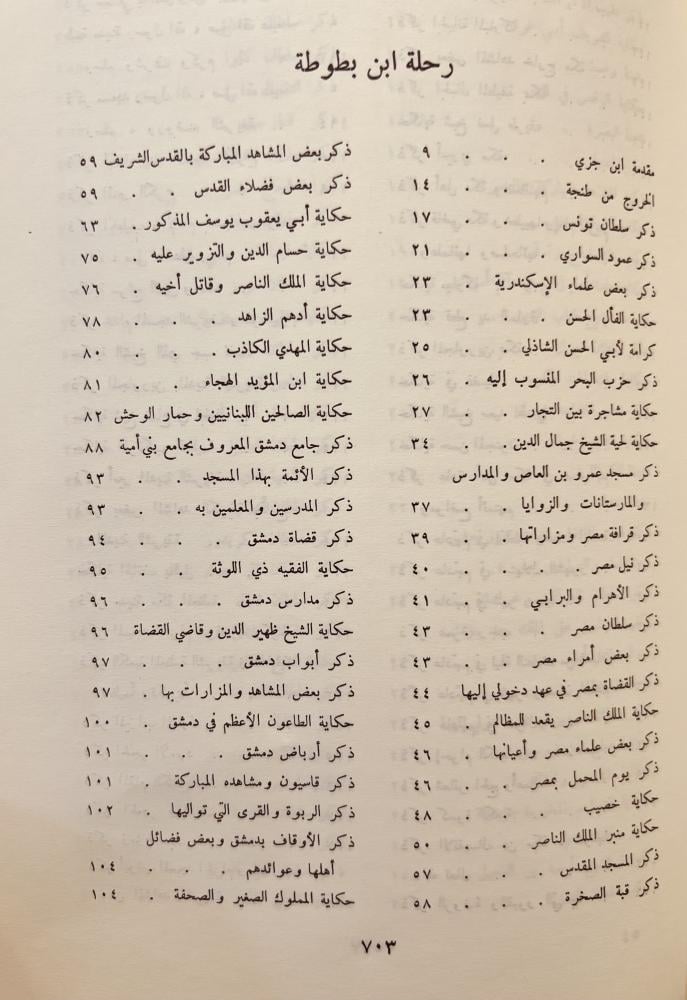 رحلة ابن بطوطة
مقدمة ابن جزي . . . ٩
الخروج من طنجة . . . ١٤
ذكر سلطان تونس . . . ١٧
ذكر عمود السواري . . . ٢١
ذكر بعض علماء الإسكندرية . ٢٣
حكاية الفأل الحسن . . . ٢٣
كرامة لأبي الحسن الشاذلي . ٢٥
ذكر حزب البحر المنسوب إليه . ٢٦
حكاية مشاجرة بين التجار . . ٢٧
حكاية لحية الشيخ جمال الدين . ٣٤
ذكر مسجد عمرو بن العاص والمدارس
والمارستانات والزوايا . . ٣٧
ذكر قرافة مصر ومزاراتها . . ٣٩
ذكر نيل مصر . . . ٤٠
ذكر الأهرام والبرابي . . ٤١
ذكر سلطان مصر . . . ٤٣
ذكر بعض أمراء مصر . . ٤٣
ذكر القضاة بمصر في عهد دخولي إليها ٤٤
حكاية الملك الناصر يقعد للمظالم . ٤٥
ذكر بعض علماء مصر وأعيانها . ٤٦
ذكر يوم المحمل بمصر . . ٤٦
حكاية خصيب . . . ٤٨
حكاية منبر الملك الناصر . . ٥٠
ذكر المسجد المقدس . . . ٥٧
ذكر قبة الصخرة . . . ٥٨
ذكر بعض المشاهد المباركة بالقدس الشريف ٥٩
ذكر بعض فضلاء القدس . . ٥٩
حكاية أبي يعقوب يوسف المذكور . ٦٣
حكاية حسام الدين والتزوير عليه . ٧٥
حكاية الملك الناصر وقاتل أخيه . ٧٦
حكاية أدهم الزاهد . . . ٧٨
حكاية المهدي الكاذب . . . ٨٠
حكاية ابن المؤيد الهجاء . . ٨١
حكاية الصالحين اللبنانيين وحمار الوحش ٨٢
ذكر جامع دمشق المعروف بجامع بني أمية ٨٨
ذكر الأئمة بهذا المسجد . . ٩٣
ذكر المدرسين والمعلمين به . . ٩٣
ذكر قضاة دمشق . . . ٩٤
حكاية الفقيه ذي اللوثة . . ٩٥
ذكر مدارس دمشق . . . ٩٦
حكاية الشيخ ظهير الدين وقاضي القضاة ٩٦
ذكر أبواب دمشق . . . ٩٧
ذكر بعض المشاهد والمزارات بها . ٩٧
حكاية الطاعون الأعظم في دمشق . ١٠٠
ذكر أرباض دمشق . . . ١٠١
ذكر قاسيون ومشاهده المباركة . ١٠١
ذكر الربوة والقرى التي تواليها . ١٠٢
ذكر الأوقاف بدمشق وبعض فضائل
أهلها وعوائدهم . . . ١٠٤
حكاية المملوك الصغير والصحفة . ١٠٤
٧٠٣